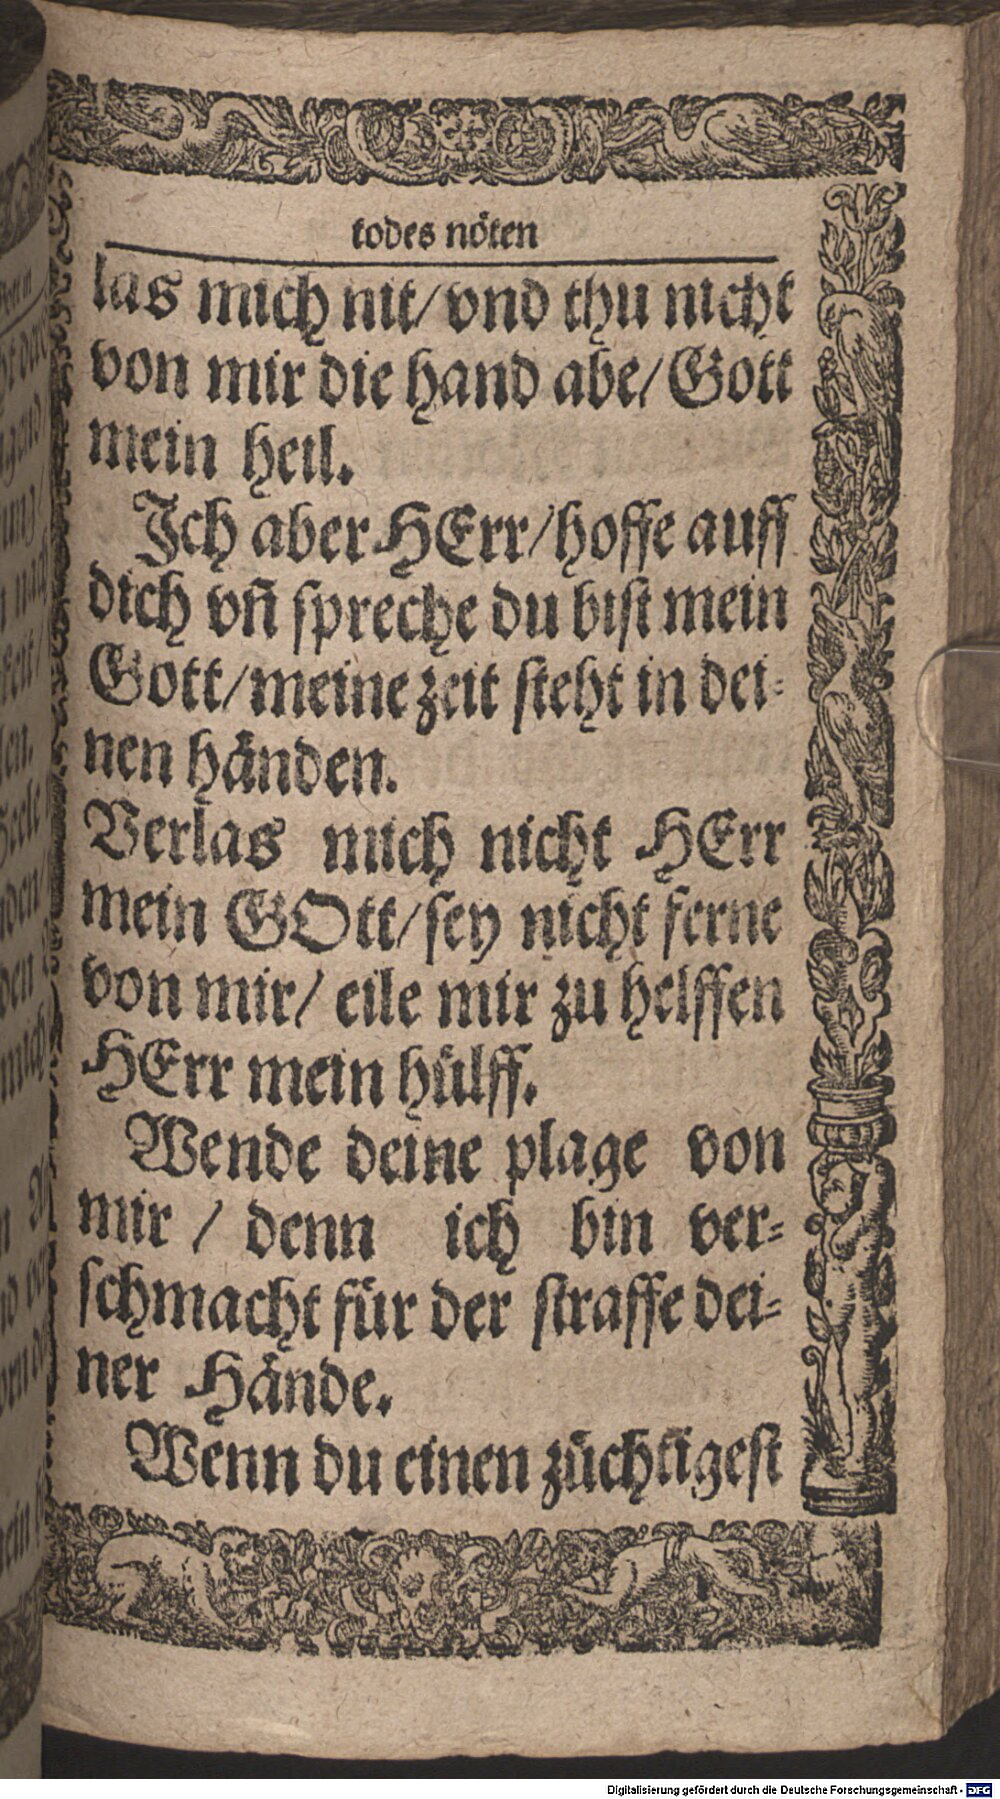 todes nöten
las mich nit/ vnd thu nicht
von mir die hand abe/ Gott
mein heil.
Ich aber HErr/ hoffe auff
dich vñ spreche du bist mein
Gott/ meine zeit steht in dei-
nen händen.
Verlas mich nicht HErr
mein GOtt/ sey nicht ferne
von mir/ eile mir zu helffen
HErr mein hülff.
Wende deine plage von
mir / denn ich bin ver-
schmacht für der straffe dei-
ner Hände.
Wenn du einen züchtigest
Digitalisierung gefördert durch die Deutsche Forschungsgemeinschaft - DFG